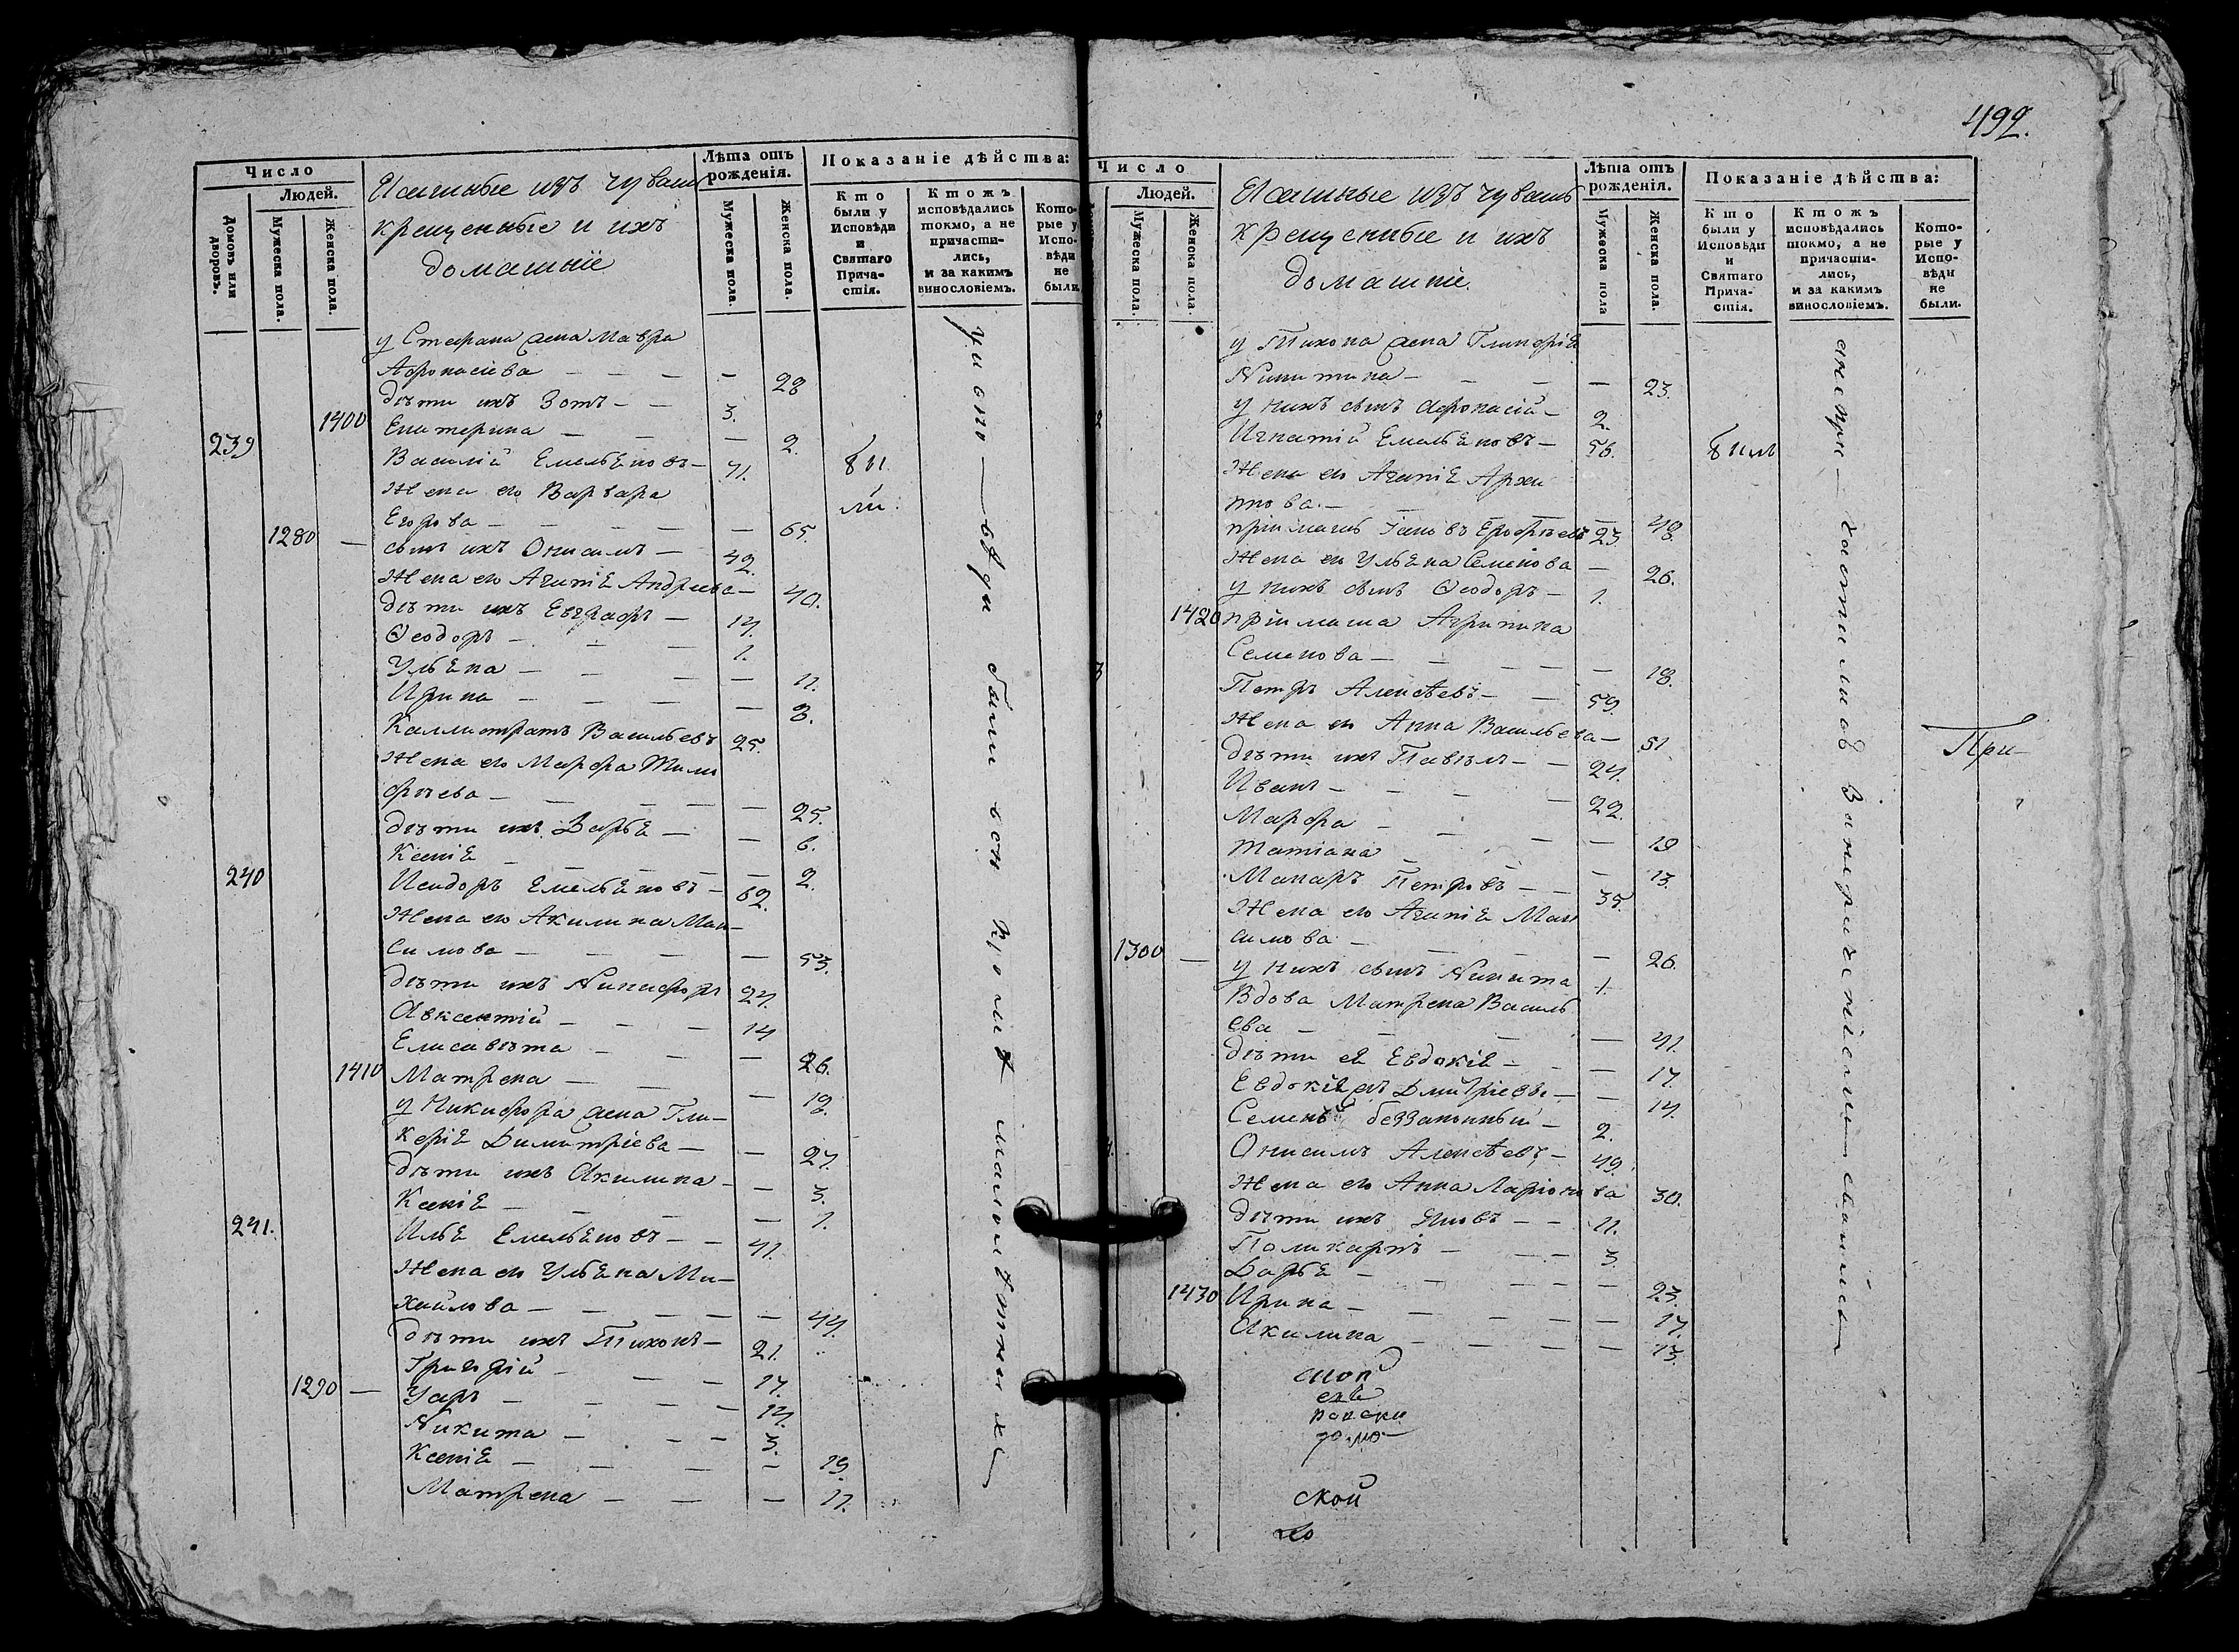 Число
Людей.
Домовъ или дворовъ.
Мужеска пола.
Женска пола.
Ясашные изъ чувашъ
крещенные и ихъ
домашніе
Лѣта отъ рожденія.
Мужеска пола.
Женска пола.
Показаніе дѣйства:
Кто были у Исповѣди и Святаго Прича-стія.
Ктожъ исповѣдались токмо, а не причасти-лись, и за какимъ винословіемъ.
Кото-рые у Испо-вѣди не были
у Стефана жена Мавра
Афонасіева — — — — 28
дѣти ихъ Зотъ — — 3.
1400 Екатерина — — — 2.
239 Василій Емельяновъ — 71.
бы
ли.
Жена его Варвара
Егорова — — — — 65.
1280 — сынъ ихъ Онисимъ — 42.
Жена его Агапія Андреева — 40.
дѣти ихъ Евграфъ — 14.
Ѳеодоръ — — — 1.
Ульяна — — — — 11.
Ирина — — — — 8.
Каллистратъ Васильевъ 25.
Жена его Марфа Тимо
фѣева — — — — 25.
дѣти ихъ Дарья — — 6.
Ксенія — — — — 2.
240 Исидоръ Емельяновъ — 62.
Жена его Акилина Мак-
симова — — — — 53.
дѣти ихъ Никифоръ 24.
Авксентій — — — 14
Елисавѣта — — — 26.
1410 Матрена — — — 18.
у Никифора жена Гли-
керія Димитріева — — 27.
дѣти ихъ Акилина — — 3.
Ксенія — — — — 1.
241. Илья Емельяновъ — — 41.
Жена его Ульяна Ми-
хайлова — — — — 44.
дѣти ихъ Тихонъ — 21.
Григорій — — — 17.
1290 — Уаръ — — — — 14.
Никита — — — 3.
Ксенія — — — — 19.
Матрена — — — 11.
были вси кромѣ малолѣтнихъ
492.
Число
Людей.
Мужеска пола.
Женска пола.
Ясашные изъ чувашъ
крещенные и ихъ
домашніе.
Лѣта отъ рожденія.
Мужеска пола
Женска пола.
Показаніе дѣйства:
Кто были у Исповѣди и Святаго Прича-стія.
Ктожъ исповѣдались токмо, а не причасти-лись, и за какимъ винословіемъ.
Кото-рые у Испо-вѣди не были.
у Тихона жена Гликерія
Никитина — — — — 23.
у нихъ сынъ Афонасій — 2.
Игнатій Емельяновъ — 56.
Жена его Агапія Архи
пова. — — — — 48.
пріимышъ Іаковъ Ерофѣевъ 23.
Жена его Ульяна Семенова — 26.
у нихъ сынъ Ѳеодоръ — 1.
1420 пріимыша Агрипина
Семенова — — — — 18.
Петръ Алексѣевъ — — 59.
Жена его Анна Васильева — 51.
дѣти ихъ Павелъ — — 24.
Иванъ — — — — 22.
Марфа — — — — 19
Татіана — — — 13.
Макаръ Петровъ — — 35.
Жена его Агапія Мак
симова — — — — 26.
1300 — у нихъ сынъ Никита 1.
Вдова Матрена Василь
ева — — — — 41.
дѣти ея Евдокія — — — 17.
— 14.
Семенъ беззаконный — 2.
Онисимъ Алексѣевъ — 49.
Жена его Анна Ларіонова 30.
дѣти ихъ Яковъ — — 11.
Поликарпъ — — — 3.
Дарья — — — — 23.
1430 Ирина — — — — 17.
Акилина — — — — 13.
При-
ской